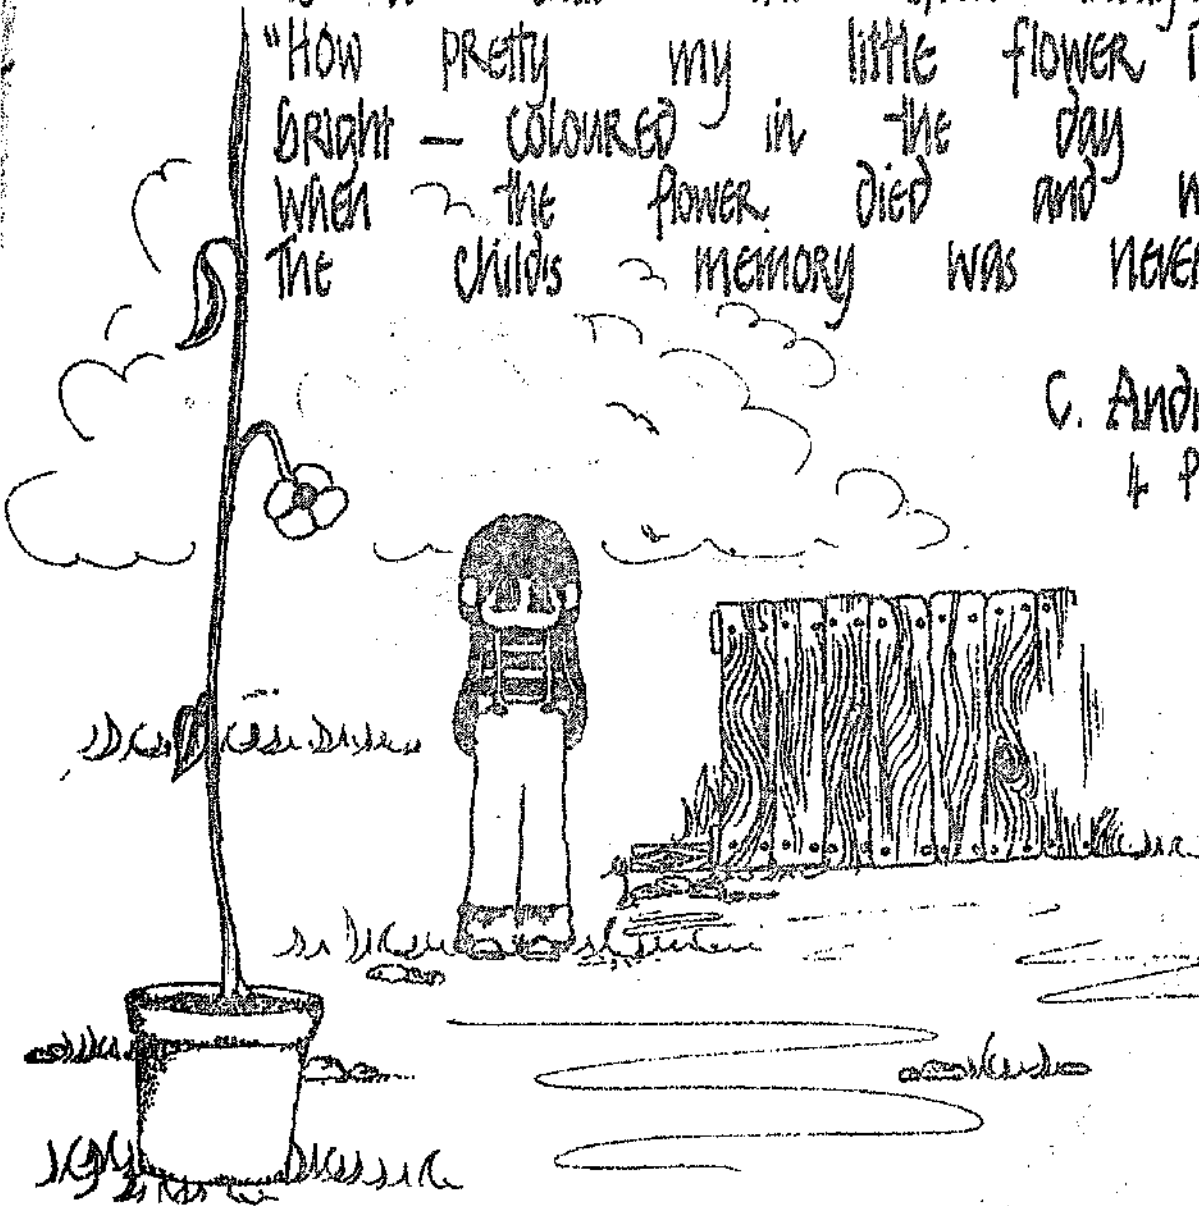 "How pretty my little flower
bright - coloured in the day
When the flower died and
The child's memory was never
C. And
4 P